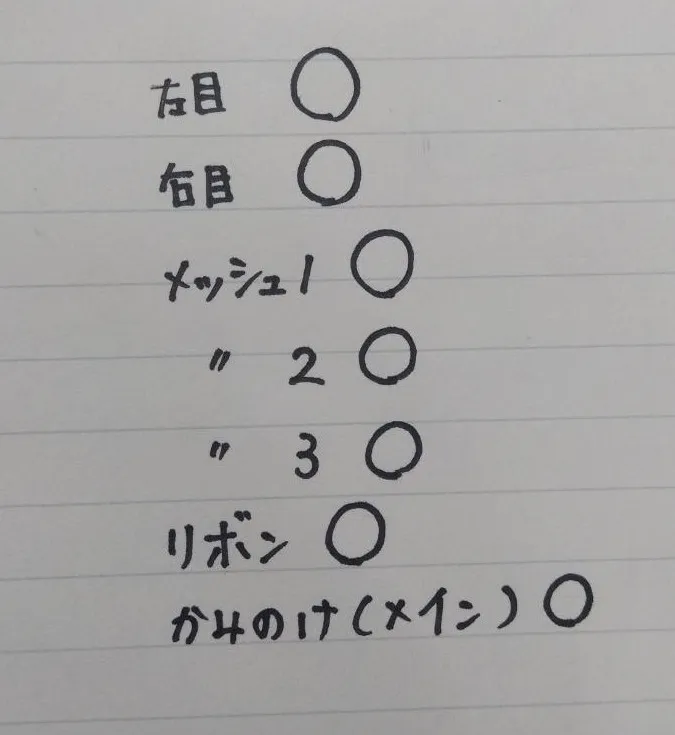 左目 ○
右目 ○
メッシュ1 ○
〃 2 ○
〃 3 ○
リボン ○
かみのけ(メイン) ○